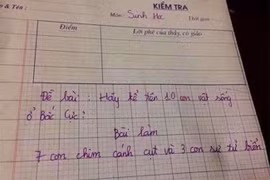 & Tên :
KIỂM TRA
Môn: Sinh Học Thời gian:
Điểm Lời phê của thầy, cô giáo
Đề bài : Hãy kể tên 10 con vật sống
ở Bắc Cực ?
Bài làm
7 con chim cánh cụt và 3 con sư tử biển